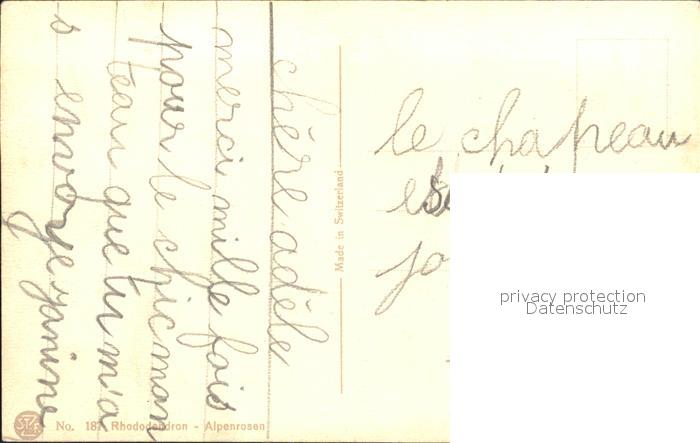 chère adèle
merci mille fois
pour le chic man
teau que tu m'a
s envoye janine
le chapeau
Made in Switzerland
No. 187 Rhododendron - Alpenrosen
privacy protection
Datenschutz